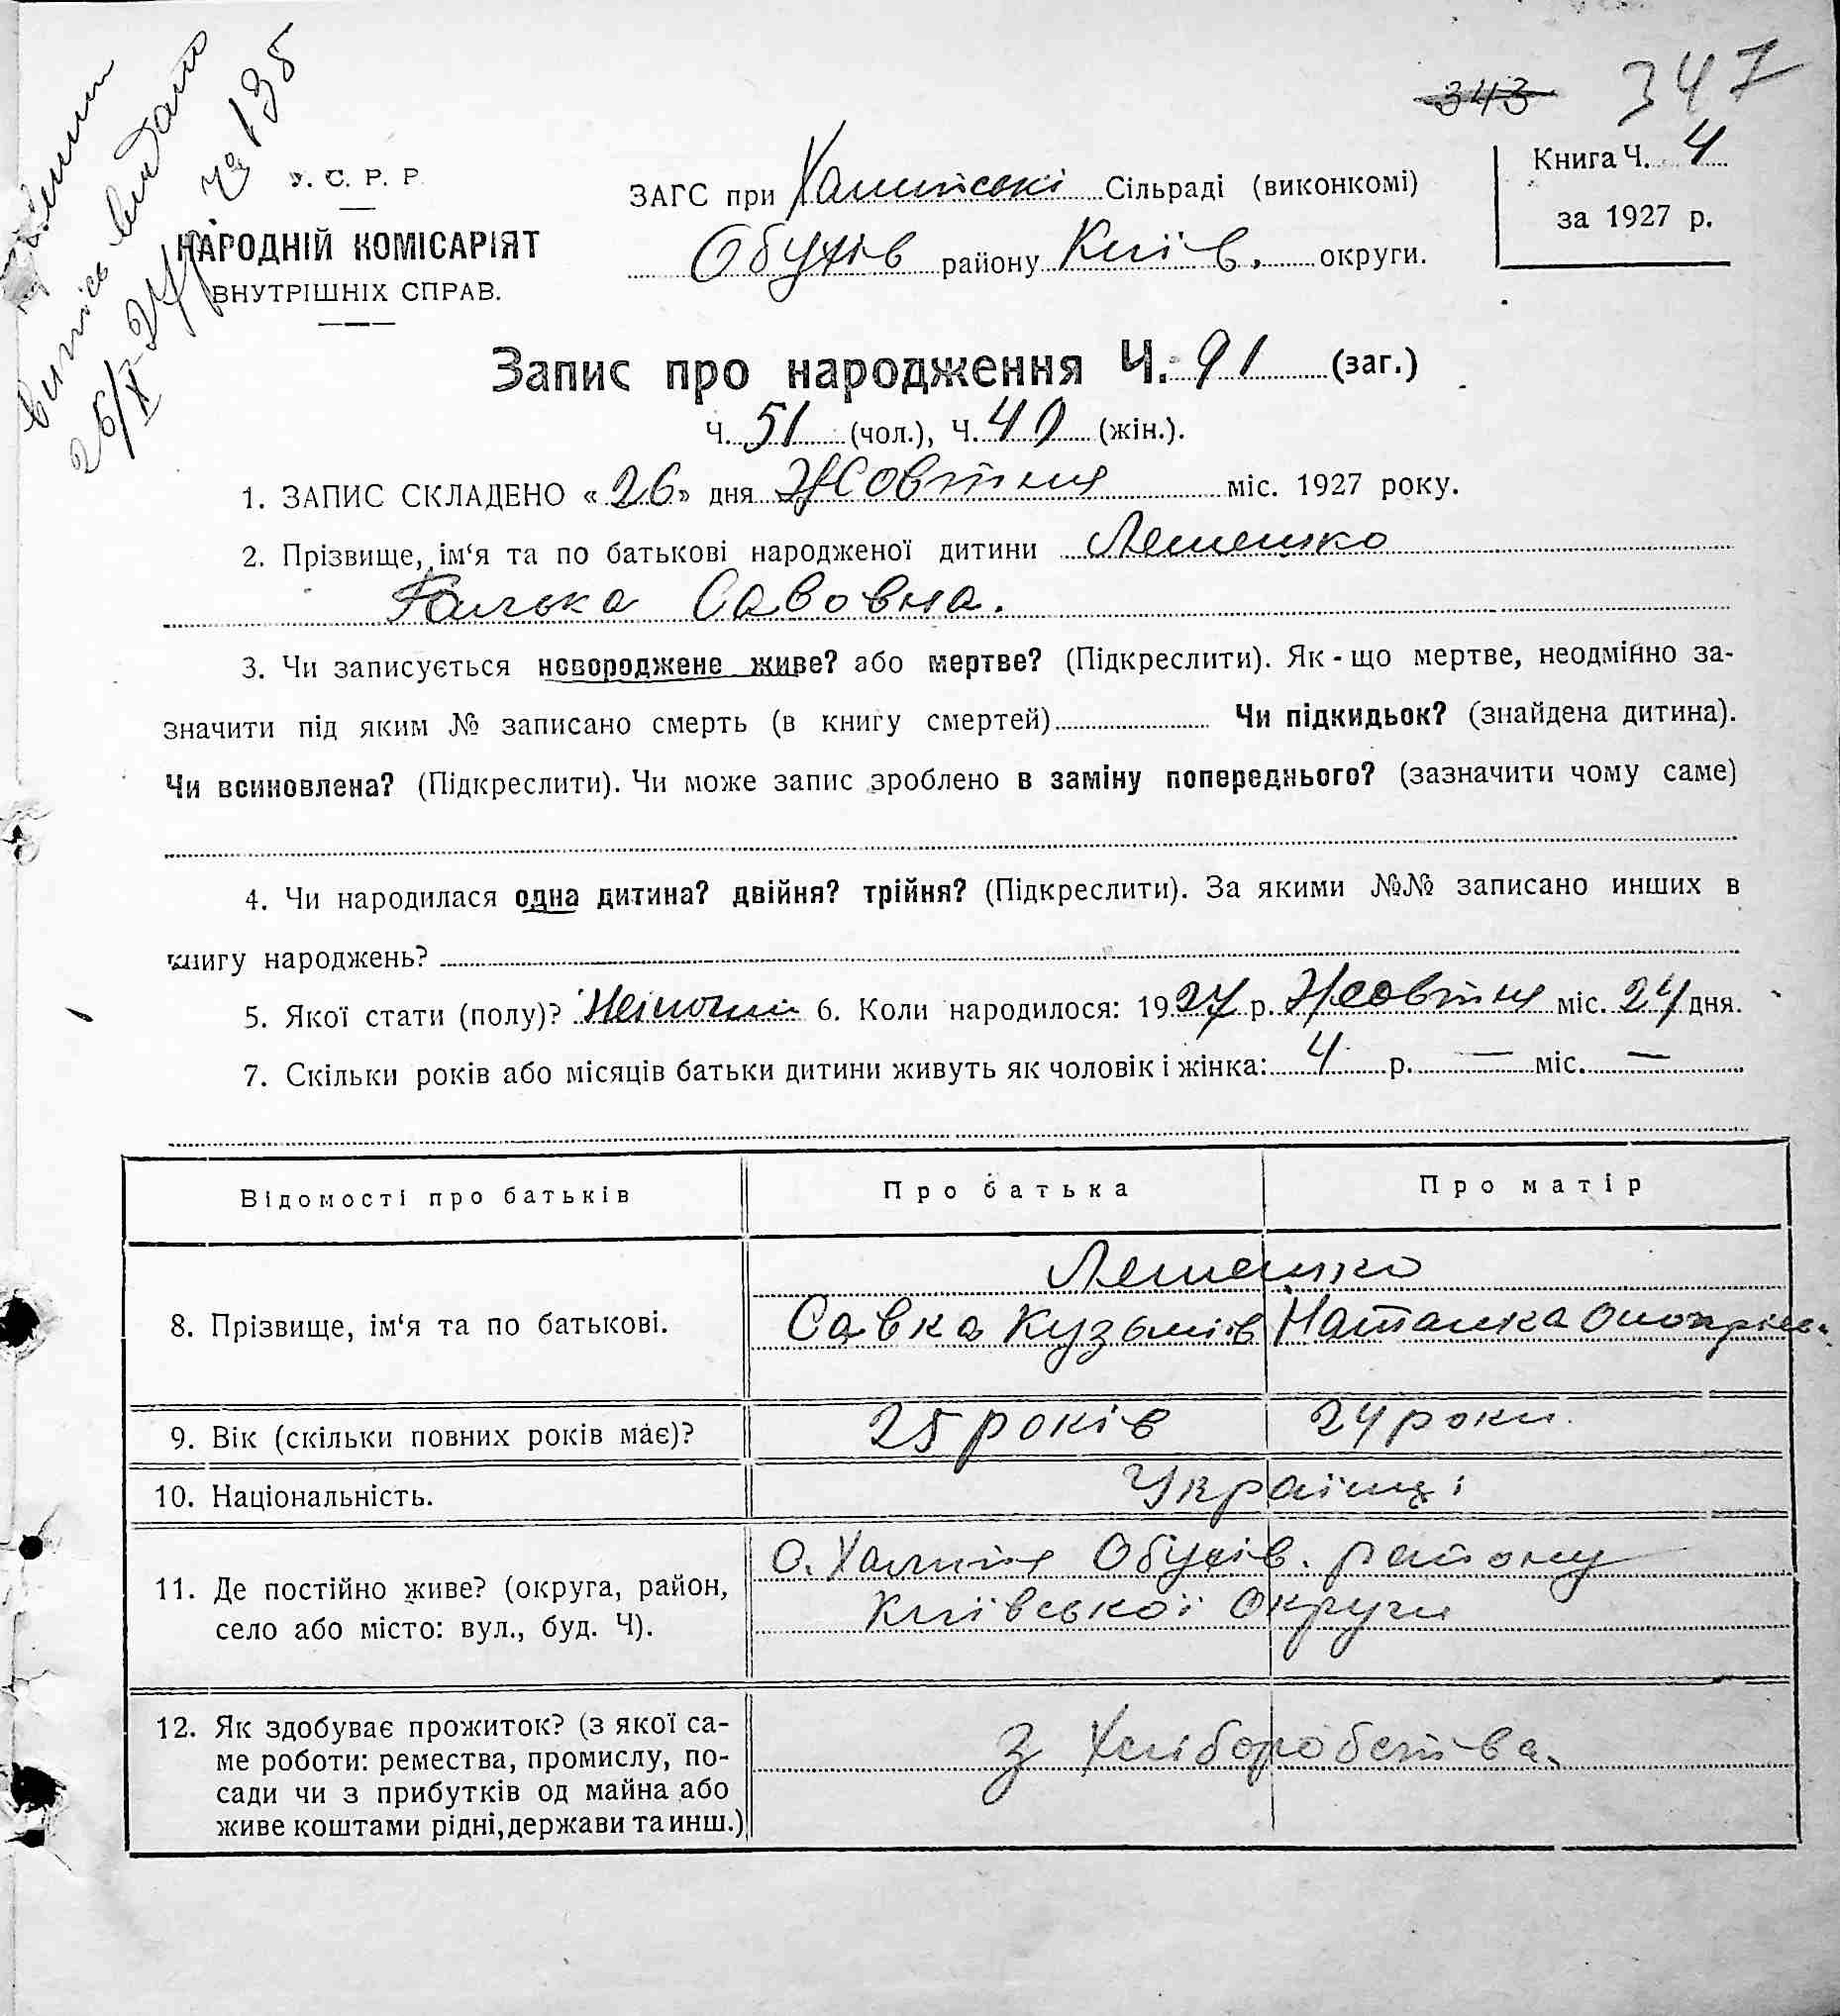 343 347
випись видано
26/X-27 р. № 135
У. С. Р. Р.
НАРОДНІЙ КОМІСАРІЯТ
ВНУТРІШНІХ СПРАВ.
ЗАГС при Халипській Сільраді (виконкомі)
Обухів району Київ. округи.
Книга Ч. 4
за 1927 р.
Запис про народження Ч. 91 (заг.)
Ч. 51 (чол.), Ч. 40 (жін.).
1. ЗАПИС СКЛАДЕНО «26» дня Жовтня міс. 1927 року.
2. Прізвище, ім‘я та по батькові народженої дитини Лемешко
Галька Савовна.
3. Чи записується новороджене живе? або мертве? (Підкреслити). Як-що мертве, неодмінно за-
значити під яким № записано смерть (в книгу смертей) Чи підкидьок? (знайдена дитина).
Чи всиновлена? (Підкреслити). Чи може запис зроблено в заміну попереднього? (зазначити чому саме)
4. Чи народилася одна дитина? двійня? трійня? (Підкреслити). За якими №№ записано инших в
книгу народжень?
5. Якої стати (полу)? Жіночої 6. Коли народилося: 1927 р. Жовтня міс. 24 дня.
7. Скільки років або місяців батьки дитини живуть як чоловік і жінка: 4 р. — міс. —
Відомості про батьків Про батька Про матір
8. Прізвище, ім‘я та по батькові. Лемешко
Савка Кузьмів Наталка
9. Вік (скільки повних років має)? 25 років 24 роки.
10. Національність. Українці
11. Де постійно живе? (округа, район,
село або місто: вул., буд. Ч).
с. Халипя Обухів. району
Київської Округи
12. Як здобуває прожиток? (з якої са-
ме роботи: ремества, промислу, по-
сади чи з прибутків од майна або
живе коштами рідні, держави та инш.)
З Хліборобства.